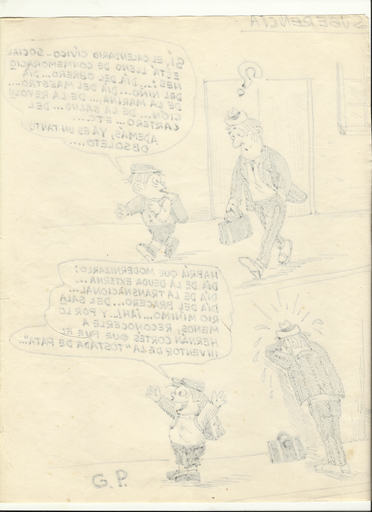 SUGERENCIA
SÍ, EL CALENDARIO CÍVICO-SOCIAL
ESTÁ LLENO DE CONMEMORACIO
NES:... DÍA DEL OBRERO... DÍA
DEL NIÑO... DÍA DEL MAESTRO...
DE LA MARINA... DE LA REVOLU
CIÓN... DE LA SALUD... DEL
CARTERO... ETC...
ADEMÁS, YA ES UN TANTO
OBSOLETO...
HABRÍA QUE MODERNIZARLO:
DÍA DE LA DEUDA EXTERNA...
DÍA DE LA TRANSNACIONAL
DÍA DEL BRACERO... DEL SALA
RIO MÍNIMO... ¡AH!... Y POR LO
MENOS, RECONOCERLE A
HERNÁN CORTÉS QUE FUE EL
INVENTOR DE LA "TOSTADA DE PATA"...
G.P.